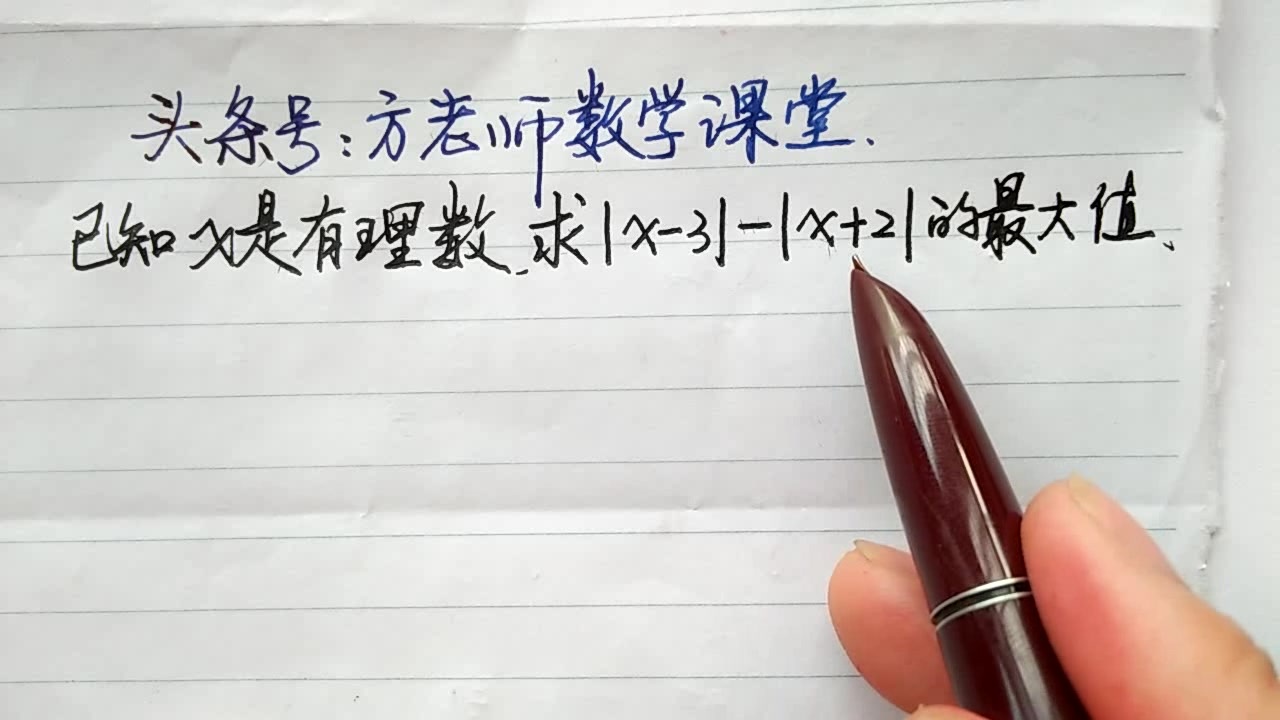 头条号:方老师数学课堂.
已知x是有理数,求|x-3|-|x+2|的最大值、